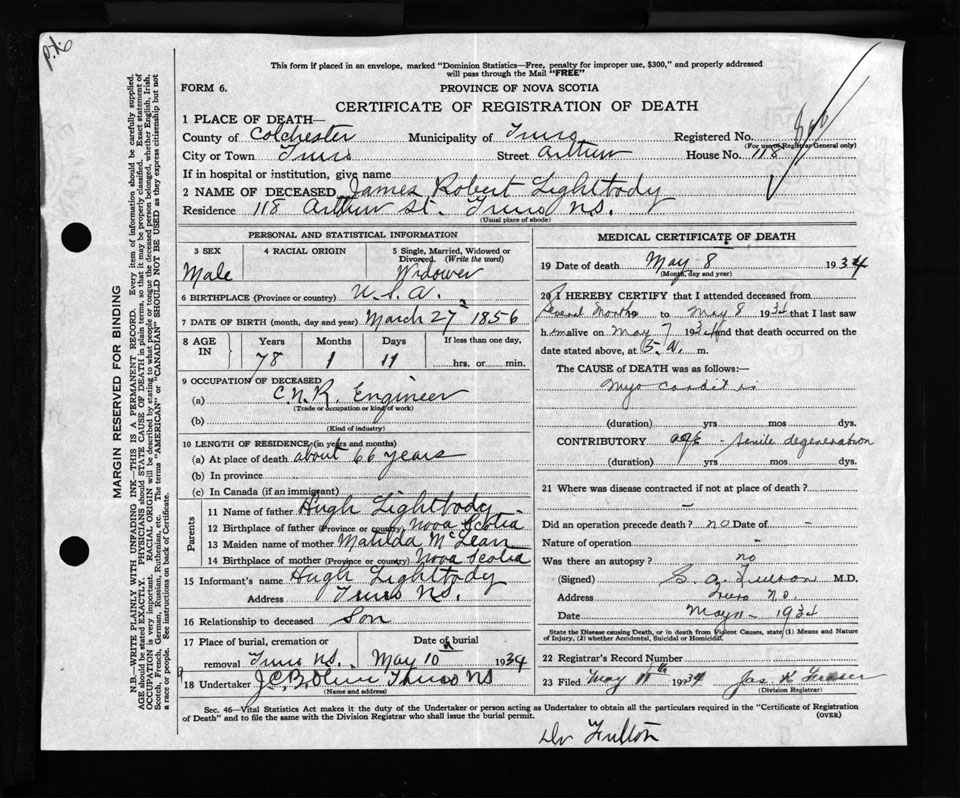 p.t.6
This form if placed in an envelope, marked "Dominion Statistics—Free, penalty for improper use, $300," and properly addressed
will pass through the Mail "FREE"
FORM 6.
PROVINCE OF NOVA SCOTIA
CERTIFICATE OF REGISTRATION OF DEATH
1 PLACE OF DEATH—
County of Colchester Municipality of Truro Registered No.
(For use of Registrar General only)
City or Town Truro Street Arthur House No. 118
If in hospital or institution, give name
2 NAME OF DECEASED James Robert Lightbody
Residence 118 Arthur St. Truro N.S.
(Usual place of abode)
PERSONAL AND STATISTICAL INFORMATION
3 SEX 4 RACIAL ORIGIN 5 Single, Married, Widowed or Divorced. (Write the word)
Male Widower
6 BIRTHPLACE (Province or country) U.S.A.
7 DATE OF BIRTH (month, day and year) March 27 1856
8 AGE IN Years Months Days If less than one day,
78 1 11 hrs. or min.
9 OCCUPATION OF DECEASED
(a) C.N.R. Engineer
(Trade or occupation or kind of work)
(b)
(Kind of industry)
10 LENGTH OF RESIDENCE (in years and months)
(a) At place of death about 66 years
(b) In province
(c) In Canada (if an immigrant)
Parents
11 Name of father Hugh Lightbody
12 Birthplace of father (Province or country) Nova Scotia
13 Maiden name of mother Matilda McLean
14 Birthplace of mother (Province or country) Nova Scotia
15 Informant's name Hugh Lightbody
Address Truro N.S.
16 Relationship to deceased Son
17 Place of burial, cremation or Date of burial
removal Truro N.S. May 10 1934
18 Undertaker J.C.B. Olive Truro N S
(Name and address)
MEDICAL CERTIFICATE OF DEATH
19 Date of death May 8 1934
(Month, day and year)
20 I HEREBY CERTIFY that I attended deceased from
Several Months to May 8 1934 that I last saw
him alive on May 7 1934 and that death occurred on the
date stated above, at 5 A. m.
The CAUSE OF DEATH was as follows:—
Myocarditis
(duration) yrs mos dys.
CONTRIBUTORY age - senile degeneration
(duration) yrs mos dys.
21 Where was disease contracted if not at place of death?
Did an operation precede death? no Date of –
Nature of operation –
Was there an autopsy? no
(Signed) S. G. Fulton M.D.
Address Truro N.S.
Date May 11 – 1934
State the Disease causing Death, or in death from Violent Causes, state (1) Means and Nature
of Injury, (2) whether Accidental, Suicidal or Homicidal.
22 Registrar's Record Number
23 Filed May 11th 1934 Jas K Fraser
(Division Registrar)
Sec. 46—Vital Statistics Act makes it the duty of the Undertaker or person acting as Undertaker to obtain all the particulars required in the "Certificate of Registration
of Death" and to file the same with the Division Registrar who shall issue the burial permit. (OVER)
Dr Fulton
MARGIN RESERVED FOR BINDING
N.B.—WRITE PLAINLY WITH UNFADING INK—THIS IS A PERMANENT RECORD. Every item of information should be carefully supplied.
AGE should be stated EXACTLY. PHYSICIANS should STATE CAUSE OF DEATH in plain terms, so that it may be properly classified. Exact statement of
OCCUPATION is very important. RACIAL ORIGIN will be described by stating to what people or tongue the deceased person belonged, whether English, Irish,
Scotch, French, German, Russian, Ruthenian, etc. The terms "AMERICAN" or "CANADIAN" SHOULD NOT BE USED as they express citizenship but not
a race or people. See instructions on back of Certificate.